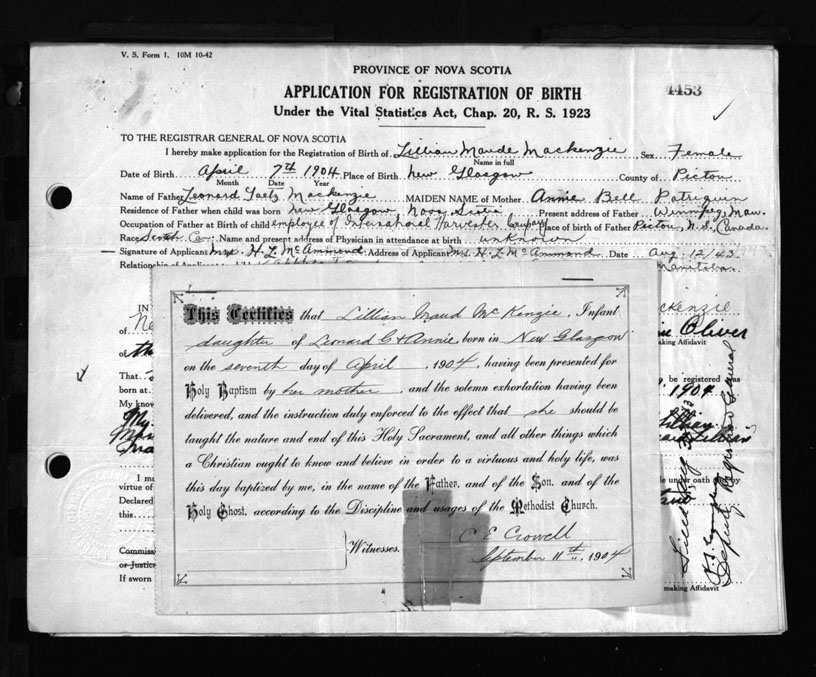 V. S. Form 1. 10M 10-42
PROVINCE OF NOVA SCOTIA
4453
APPLICATION FOR REGISTRATION OF BIRTH
Under the Vital Statistics Act, Chap. 20, R. S. 1923
TO THE REGISTRAR GENERAL OF NOVA SCOTIA
I hereby make application for the Registration of Birth of Lillian Maude Mackenzie Sex Female
Name in full
Date of Birth April 7th 1904 Place of Birth New Glasgow County of Pictou
Month Date Year
Name of Father Leonard Gaetz Mackenzie MAIDEN NAME of Mother Annie Bell Patriquin
Residence of Father when child was born New Glasgow Nova Scotia Present address of Father Winnipeg, Man.
Occupation of Father at Birth of child employee of International Harvester Company Place of birth of Father Pictou, N.S. Canada.
Race Scotch Can. Name and present address of Physician in attendance at birth unknown
Signature of Applicant Mrs. H. L. McAmmond Address of Applicant Mrs. H. L. McAmmond Date Aug 12/43
Relationship of Applicant Manitoba.
This Certifies that Lillian Maud McKenzie, Infant
daughter of Leonard G & Annie, born in New Glasgow
on the seventh day of April, 1904, having been presented for
Holy Baptism by her mother, and the solemn exhortation having been
delivered, and the instruction duly enforced to the effect that she should be
taught the nature and end of this Holy Sacrament, and all other things which
a Christian ought to know and believe in order to a virtuous and holy life, was
this day baptized by me, in the name of the Father, and of the Son, and of the
Holy Ghost, according to the Discipline and usages of the Methodist Church.
C E Crowell
Witnesses.
September 11th, 1904
IN
of Ne
of th
That
born at
My know
My
I ma
virtue of
Declared
this
Commiss
or Justice
If sworn
ckenzie
Oliver
making Affidavit
be registered was
1904
Lillian
Lillian
e under oath and by
making Affidavit
Deputy Registrar General